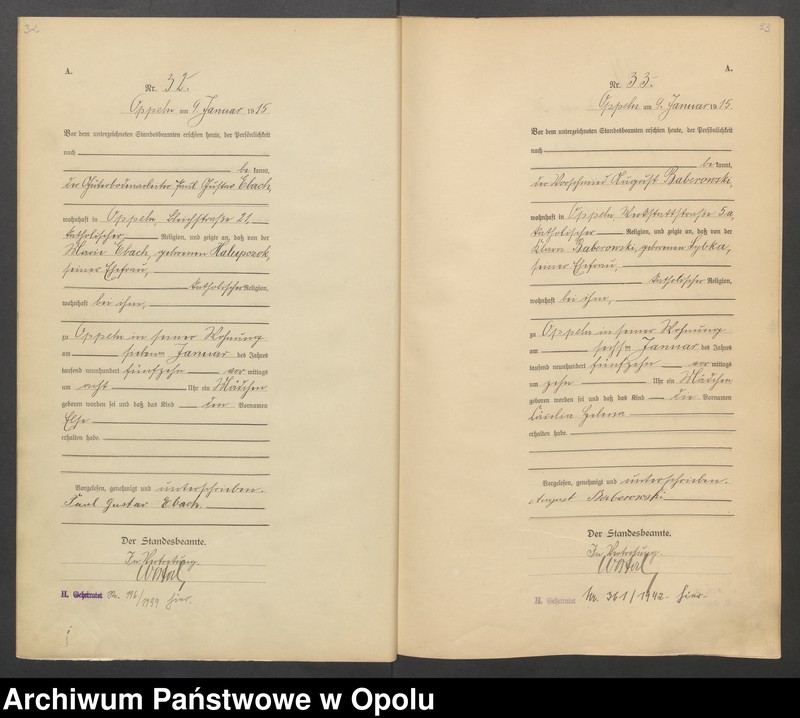 32
A.
Nr. 32.
Oppeln am 9. Januar 1915.
Vor dem unterzeichneten Standesbeamten erschien heute, der Persönlichkeit
nach
be kannt,
der Güterbodenarbeiter Paul Gustav Ebach,
wohnhaft in Oppeln, 21,
katholischer Religion, und zeigte an, daß von der
Marie Ebach, geborenen Halupczok,
seiner Ehefrau,
katholischer Religion,
wohnhaft bei ihm,
zu Oppeln in seiner Wohnung
am siebenten Januar des Jahres
tausend neunhundert fünfzehn vor mittags
um acht Uhr ein Mädchen
geboren worden sei und daß das Kind den Vornamen
Else
erhalten habe.
Vorgelesen, genehmigt und unterschrieben.
Paul Gustav Ebach
Der Standesbeamte.
In Vertretung.
H. Geheiratet Nr. 196/1939 hier.
33
A.
Nr. 33.
Oppeln am 9. Januar 1915.
Vor dem unterzeichneten Standesbeamten erschien heute, der Persönlichkeit
nach
be kannt,
der Vorschmied August Baberowski,
wohnhaft in Oppeln, Werkstattstraße 5a,
katholischer Religion, und zeigte an, daß von der
Klara Baberowski, geborenen Sybka,
seiner Ehefrau,
katholischer Religion,
wohnhaft bei ihm,
zu Oppeln in seiner Wohnung
am sechsten Januar des Jahres
tausend neunhundert fünfzehn vor mittags
um zehn Uhr ein Mädchen
geboren worden sei und daß das Kind die Vornamen
Cäcilia Helena
erhalten habe.
Vorgelesen, genehmigt und unterschrieben.
August Baberowski
Der Standesbeamte.
In Vertretung.
H. Geheiratet Nr. 361/1942 hier.
Archiwum Państwowe w Opolu